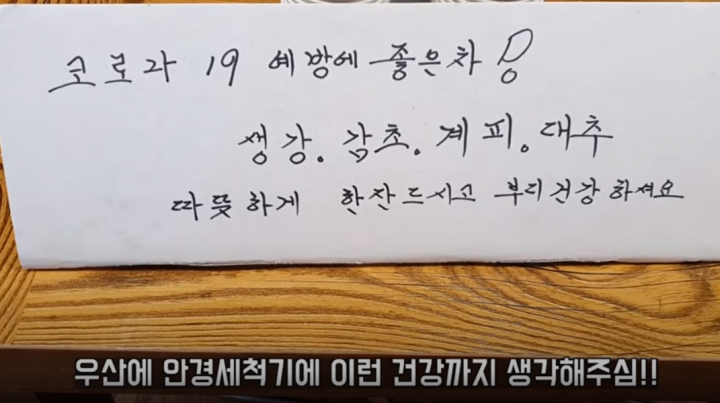 코로나 19 예방에 좋은차!
생강. 감초. 계피. 대추
따뜻하게 한잔드시고 부디건강하셔요
우산에 안경세척기에 이런 건강까지 생각해주심!!